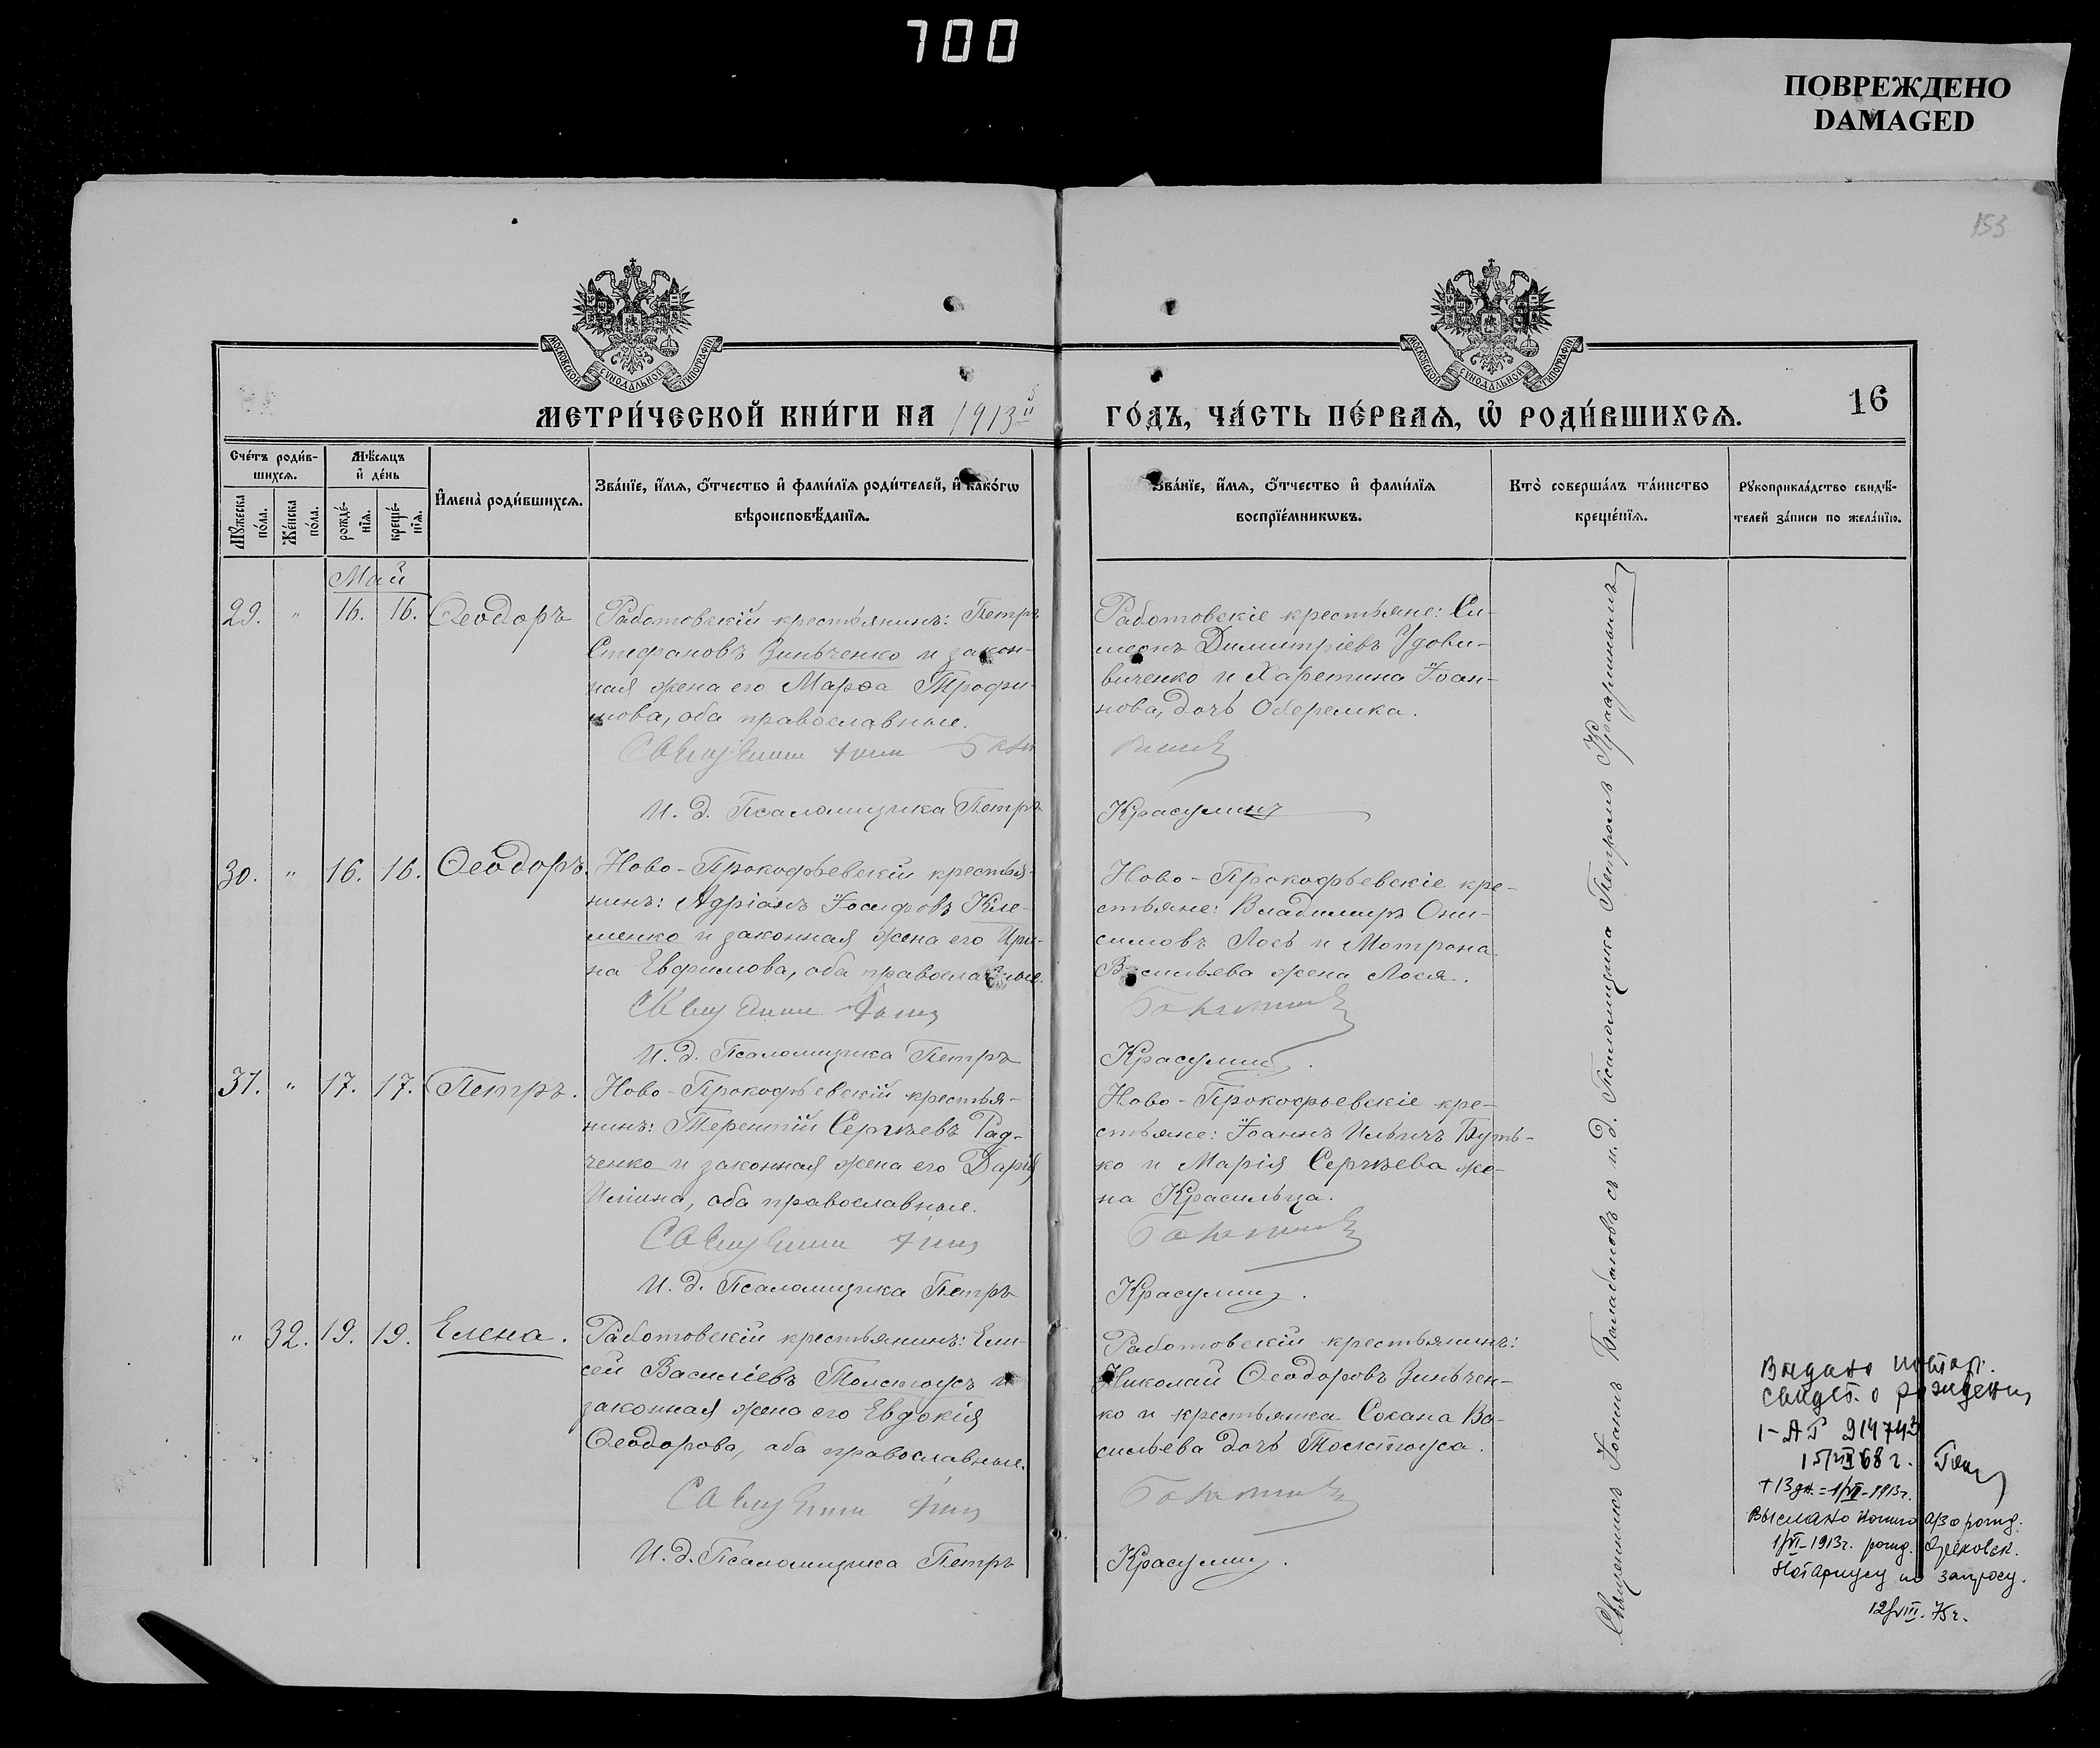 700
ПОВРЕЖДЕНО
DAMAGED
153
МОСКОВСКОЙ СѴНОДАЛЬНОЙ ТИПОГРАФІИ
МОСКОВСКОЙ СѴНОДАЛЬНОЙ ТИПОГРАФІИ
МЕТРИ́ЧЕСКОЙ КНИ́ГИ НА 1913й
ГО́ДЪ, ЧА́СТЬ ПЕ́РВАѦ, Ѡ҆ РОДИ́ВШИХСѦ.
16
Сче́тъ роди́в-
шихсѧ.
Мꙋ́жеска по́ла.
Же́нска по́ла.
Мѣ́сѧцъ
и҆ де́нь
рожде́-
нїѧ.
креще́-
нїѧ.
И҆мена̀ роди́вшихсѧ.
Зва́нїе, и҆́мѧ, ѻ҆́тчество и҆ фами́лїѧ роди́телей, и҆ како́гѡ
вѣроисповѣ́данїѧ.
Зва́нїе, и҆́мѧ, ѻ҆́тчество и҆ фами́лїѧ
воспрїе́мникѡвъ.
Кто̀ соверша́лъ та́инство
креще́нїѧ.
Рꙋкоприкла́дство свидѣ́-
телей за́писи по жела́нїю.
Май
29. " 16. 16. Ѳеодоръ
Работовскій крестьянинъ: Петръ
Стефановъ Зиньченко и закон-
ная жена его Марѳа Трофи-
мова, оба православные.
И. д. Псаломщика Петръ
Работовскіе крестьяне: Си-
меонъ Димитріевъ Удови-
виченко и Харетина Іоан-
нова, дочь Оберемка.
Красулинъ
30. " 16. 16. Ѳеодоръ.
Ново-Прокофьевскій крестья-
нинъ: Адріанъ Іосифовъ Кли-
менко и законная жена его Ири-
на Евфимова, оба православные.
И. д. Псаломщика Петръ
Ново-Прокофьевскіе кре-
стьяне: Владимиръ Они-
симовъ Лось и Мотрона
Васильева жена Лося.
Красулинъ.
31. " 17. 17. Петръ.
Ново-Прокофьевскій крестья-
нинъ: Терентій Сергѣевъ Рад-
ченко и законная жена его Дарія
Ильина, оба православные.
И. д. Псаломщика Петръ
Ново-Прокофьевскіе кре-
стьяне: Іоаннъ Ильичъ Буть-
ко и Марія Сергѣева же-
на Красильца.
Красулинъ.
" 32. 19. 19. Елена.
Работовскій крестьянинъ: Ели-
сей Василіевъ Толстоусъ и
законная жена его Евдокія
Ѳеодорова, оба православные.
И. д. Псаломщика Петръ
Работовскій крестьянинъ:
Николай Ѳеодоровъ Зиньчен-
ко и крестьянка Соха́на Ва-
сильева дочь Толстоуса.
Красулинъ.
Священникъ Іоаннъ Балабановъ съ и. д. Псаломщика Петромъ Красулинымъ
Выдано повтор.
свидет. о рождении
15/VII 68 г.
+13 дн. = 1/VI-1913г.
Выслано
1/VI-1913г. рожд.
Нотариусу по запросу.
12/VIII. 75г.